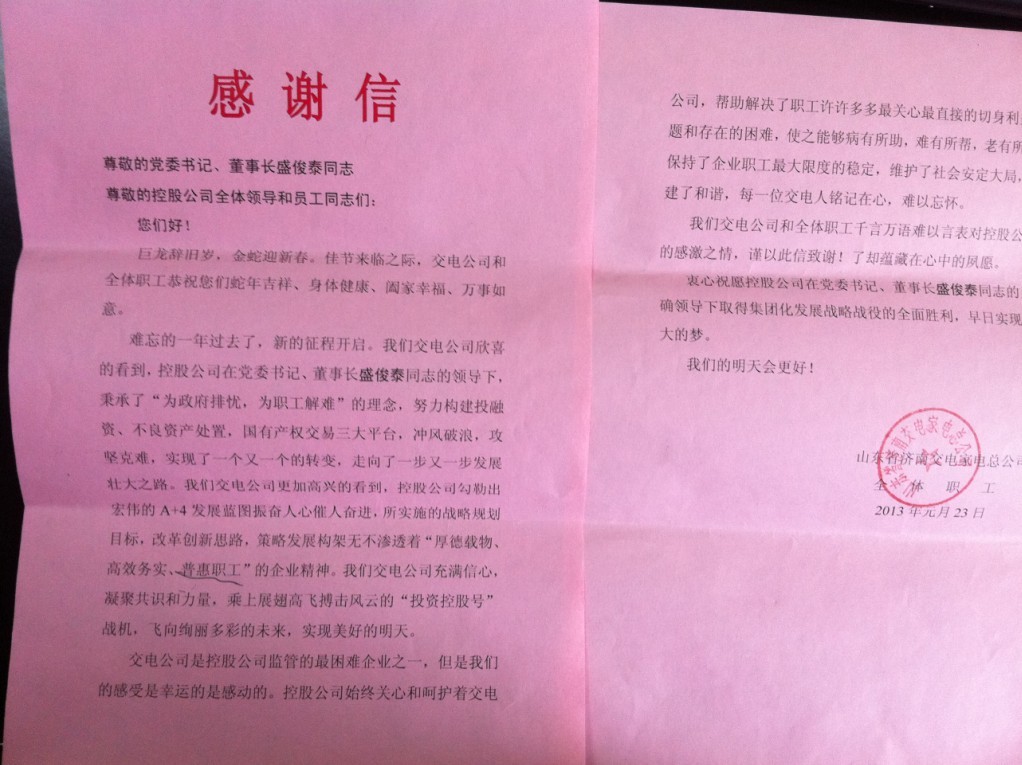 感谢信
尊敬的党委书记、董事长盛俊泰同志
尊敬的控股公司全体领导和员工同志们：
您们好！
巨龙辞旧岁，金蛇迎新春。佳节来临之际，交电公司和
全体职工恭祝您们蛇年吉祥、身体健康、阖家幸福、万事如
意。
难忘的一年过去了，新的征程开启。我们交电公司欣喜
的看到，控股公司在党委书记、董事长盛俊泰同志的领导下，
秉承了“为政府排忧，为职工解难”的理念，努力构建投融
资、不良资产处置，国有产权交易三大平台，冲风破浪，攻
坚克难，实现了一个又一个的转变，走向了一步又一步发展
壮大之路。我们交电公司更加高兴的看到，控股公司勾勒出
宏伟的 A+4 发展蓝图振奋人心催人奋进，所实施的战略规划
目标，改革创新思路，策略发展构架无不渗透着“厚德载物、
高效务实、普惠职工”的企业精神。我们交电公司充满信心，
凝聚共识和力量，乘上展翅高飞搏击风云的“投资控股号”
战机，飞向绚丽多彩的未来，实现美好的明天。
交电公司是控股公司监管的最困难企业之一，但是我们
的感受是幸运的是感动的。控股公司始终关心和呵护着交电
公司，帮助解决了职工许许多多最关心最直接的切身利
题和存在的困难，使之能够病有所助，难有所帮，老有所
保持了企业职工最大限度的稳定，维护了社会安定大局，
建了和谐，每一位交电人铭记在心，难以忘怀。
我们交电公司和全体职工千言万语难以言表对控股公
的感激之情，谨以此信致谢！了却蕴藏在心中的夙愿。
衷心祝愿控股公司在党委书记、董事长盛俊泰同志的
确领导下取得集团化发展战略战役的全面胜利，早日实现
大的梦。
我们的明天会更好！
山东省济南交电家电总公司
全体职工
2013 年元月 23 日